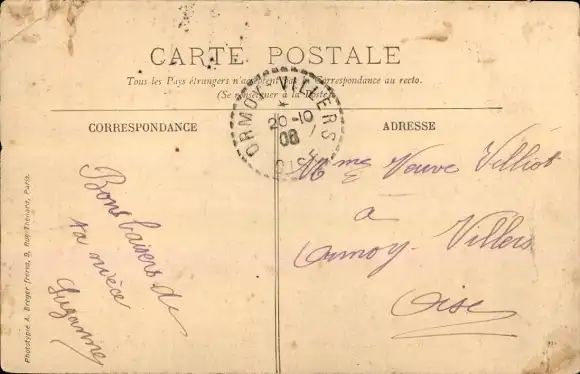 CARTE POSTALE
Tous les Pays étrangers n'acceptent pas la Correspondance au recto.
(Se renseigner à la Poste)
CORRESPONDANCE
ADRESSE
ORMOY-VILLERS
20-10
08
OISE
Bons baisers de
ta nièce
Suzanne
Mme Veuve Villiot
à
Ormoy-Villers
Oise
Phototypie A. Breger frères, 9, Rue Thénard, Paris.